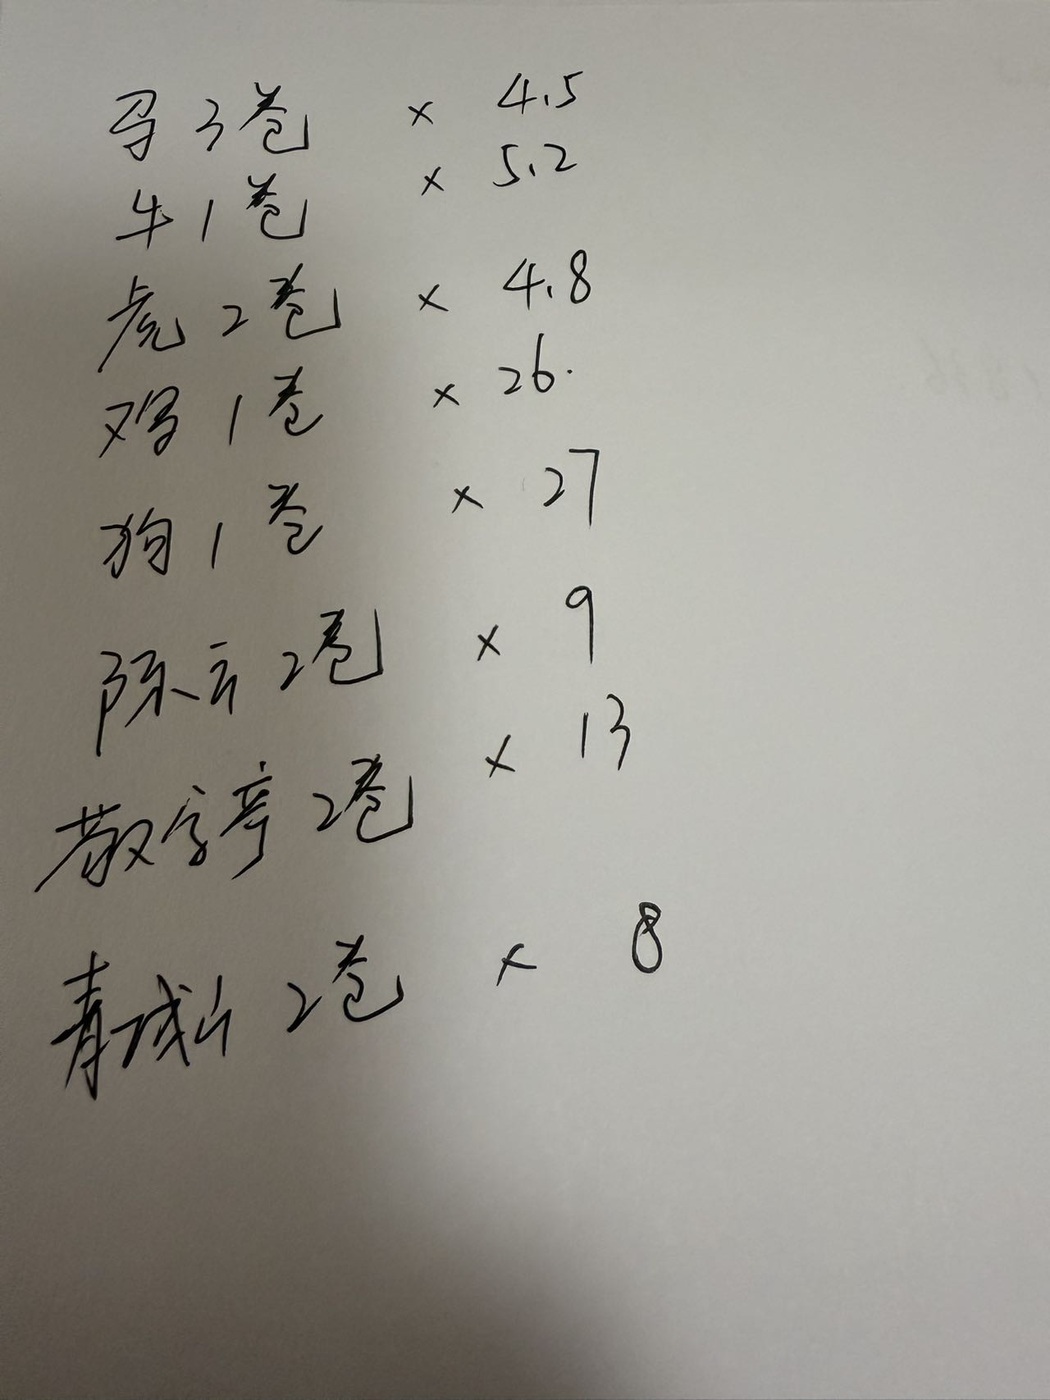 马3卷 × 4.5
牛1卷 × 5.2
虎2卷 × 4.8
鸡1卷 × 26.
狗1卷 × 27
陈云2卷 × 9
2卷 × 13
青城山2卷 × 8